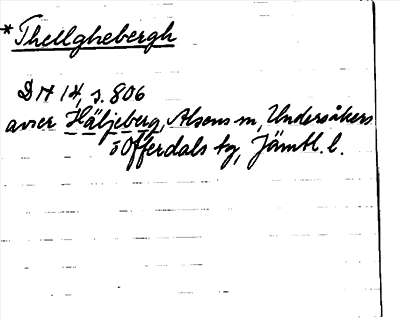 *Thellghebergh
DN 14, s. 806
avser Häljeberg, Alsens sn, Undersåkers
o Offerdals tg, Jämtl. l.